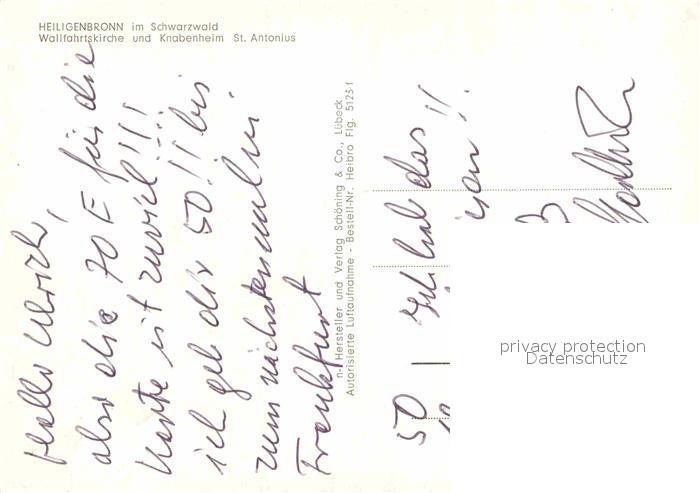 HEILIGENBRONN im Schwarzwald
Wallfahrtskirche und Knabenheim St. Antonius
Hallo Ulrich,
also die 70 E für die
Karte ist zuviel!!!
ich geb dir 50.!! bis
zum nächstenmal in
Frankfurt
n- Hersteller und Verlag Schöning & Co., Lübeck
Autorisierte Luftaufnahme - Bestell-Nr. Heibro Flg. 5123 f
Ich hab das
50
privacy protection
Datenschutz